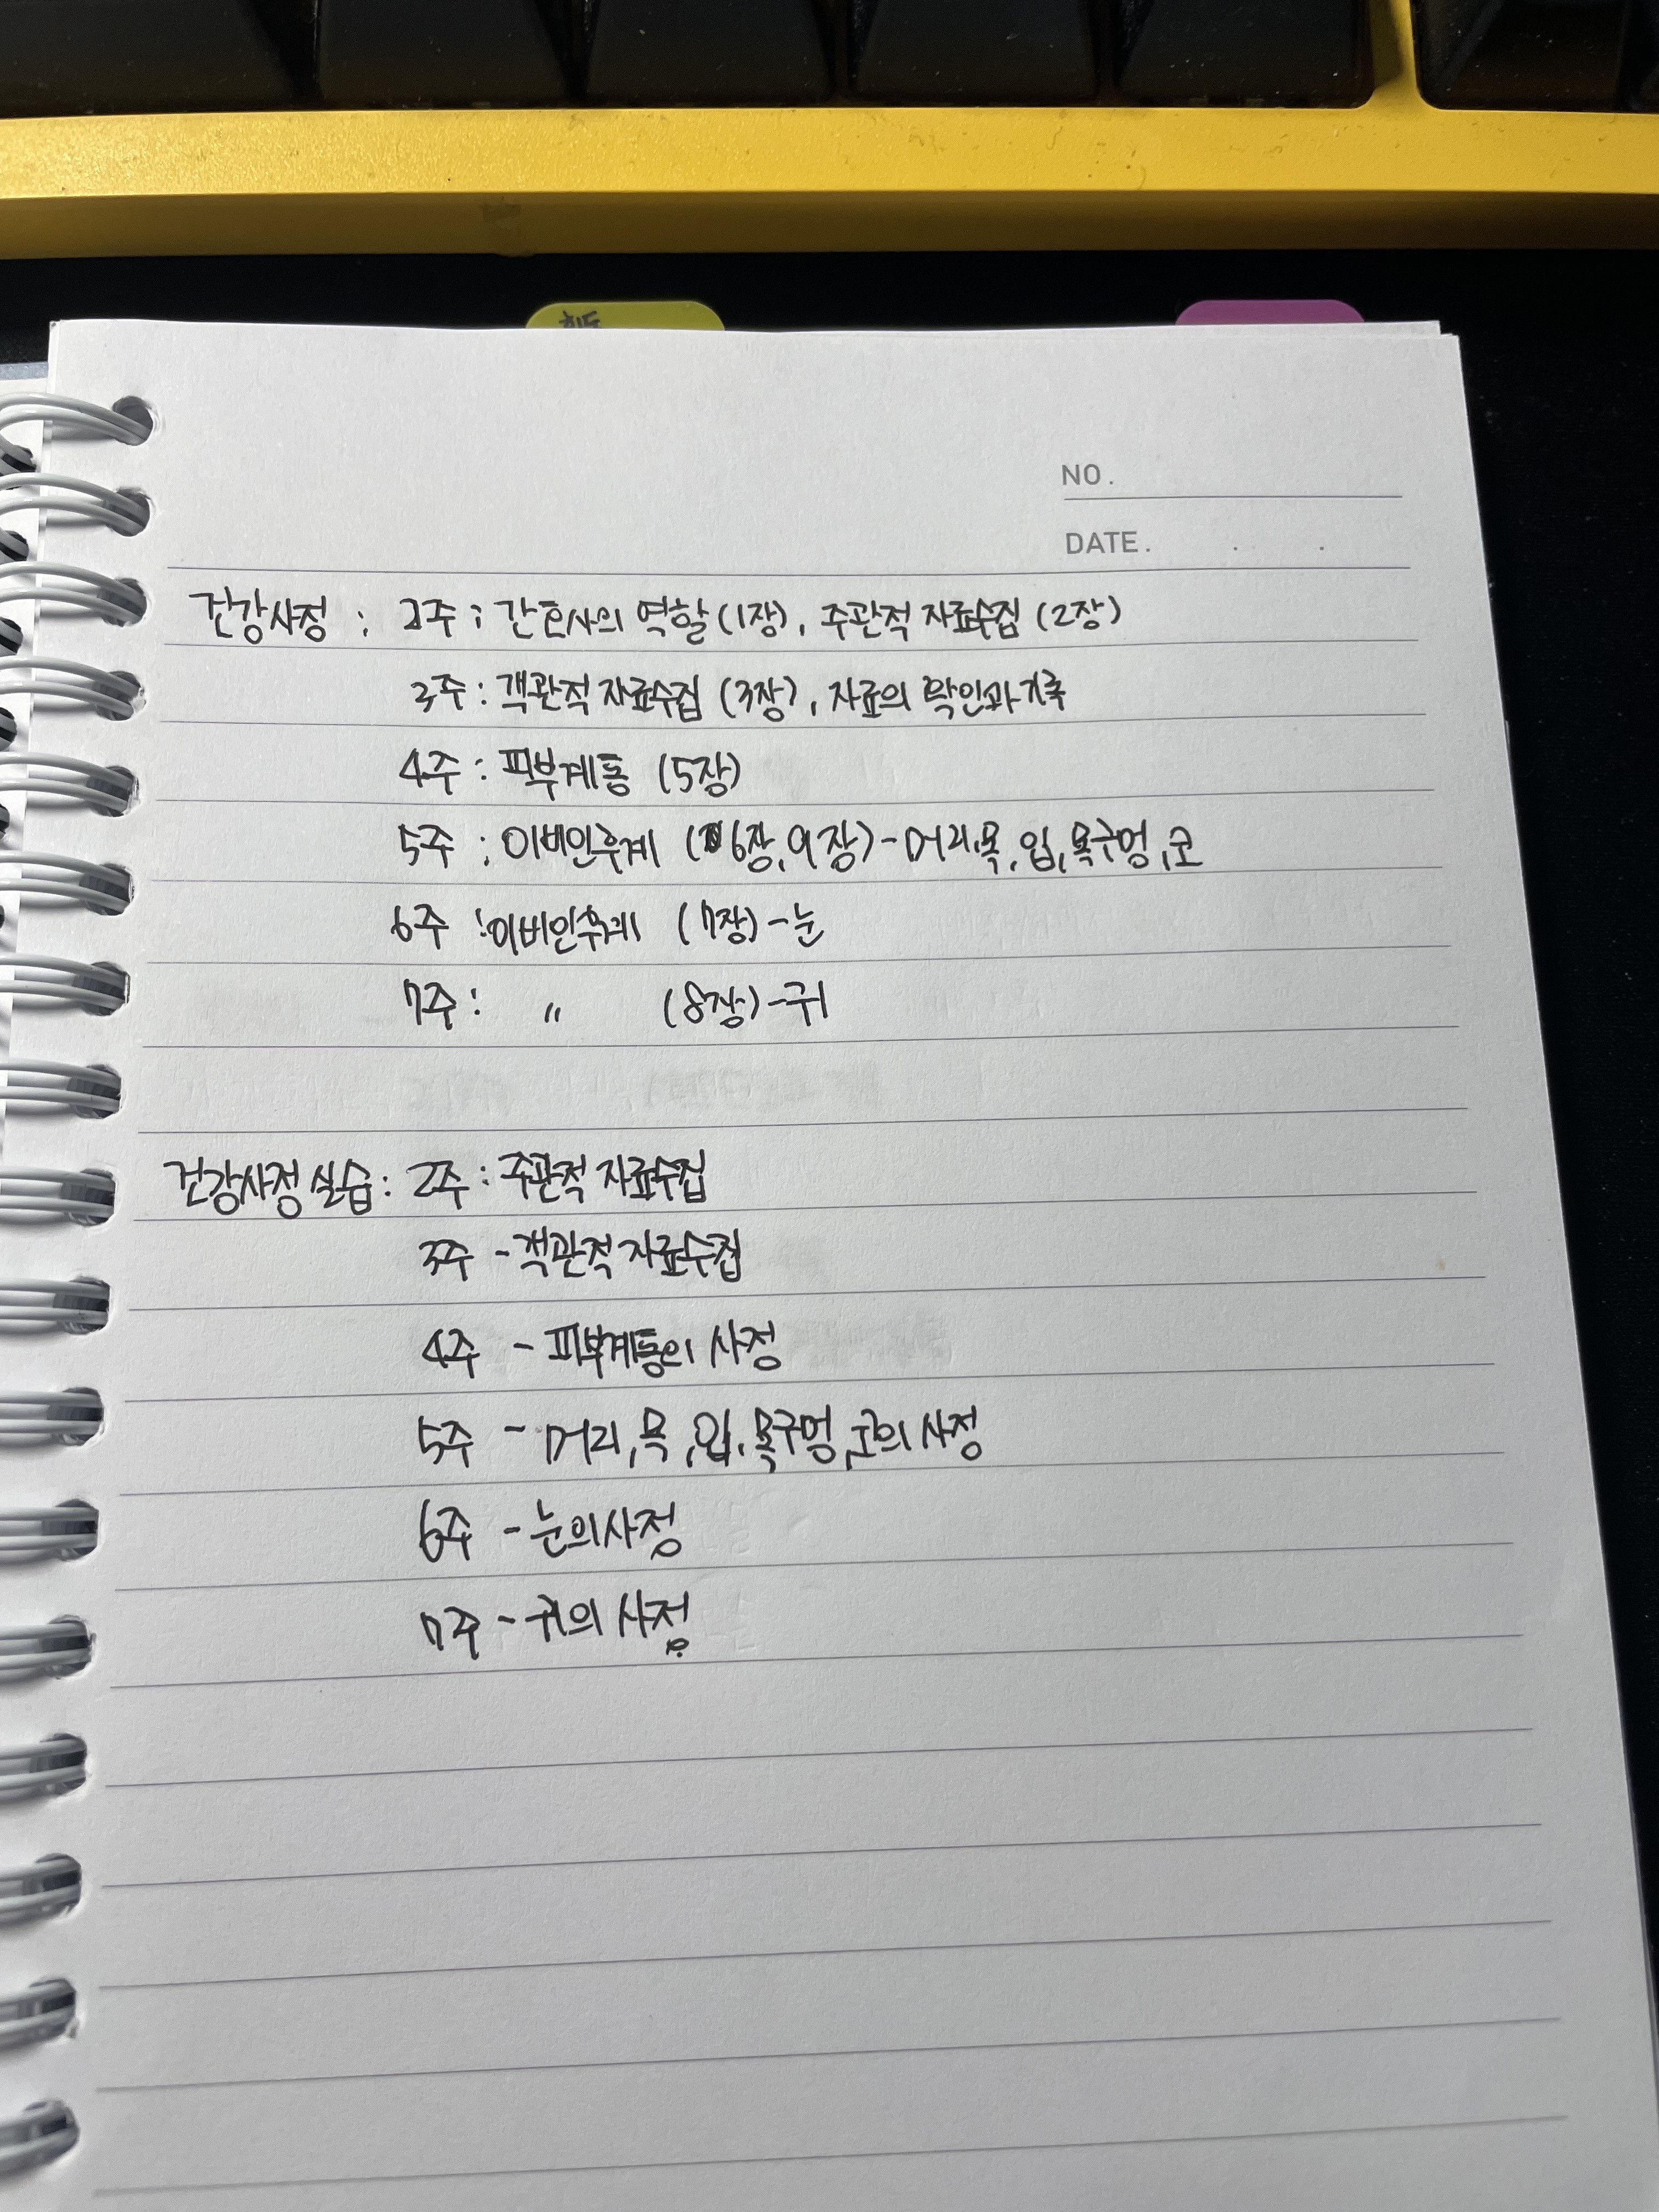 NO.
DATE. . .
건강사정 : 2주 : 간호사의 역할 (1장), 주관적 자료수집 (2장)
3주 : 객관적 자료수집 (3장), 자료의 확인과 기록
4주 : 피부계통 (5장)
5주 : 이비인후계 (6장, 9장) - 머리, 목, 입, 목구멍, 코
6주 : 이비인후계 (7장) - 눈
7주 : 〃 (8장) - 귀
건강사정 실습 : 2주 : 주관적 자료수집
3주 - 객관적 자료수집
4주 - 피부계통의 사정
5주 - 머리, 목, 입, 목구멍, 코의 사정
6주 - 눈의 사정
7주 - 귀의 사정